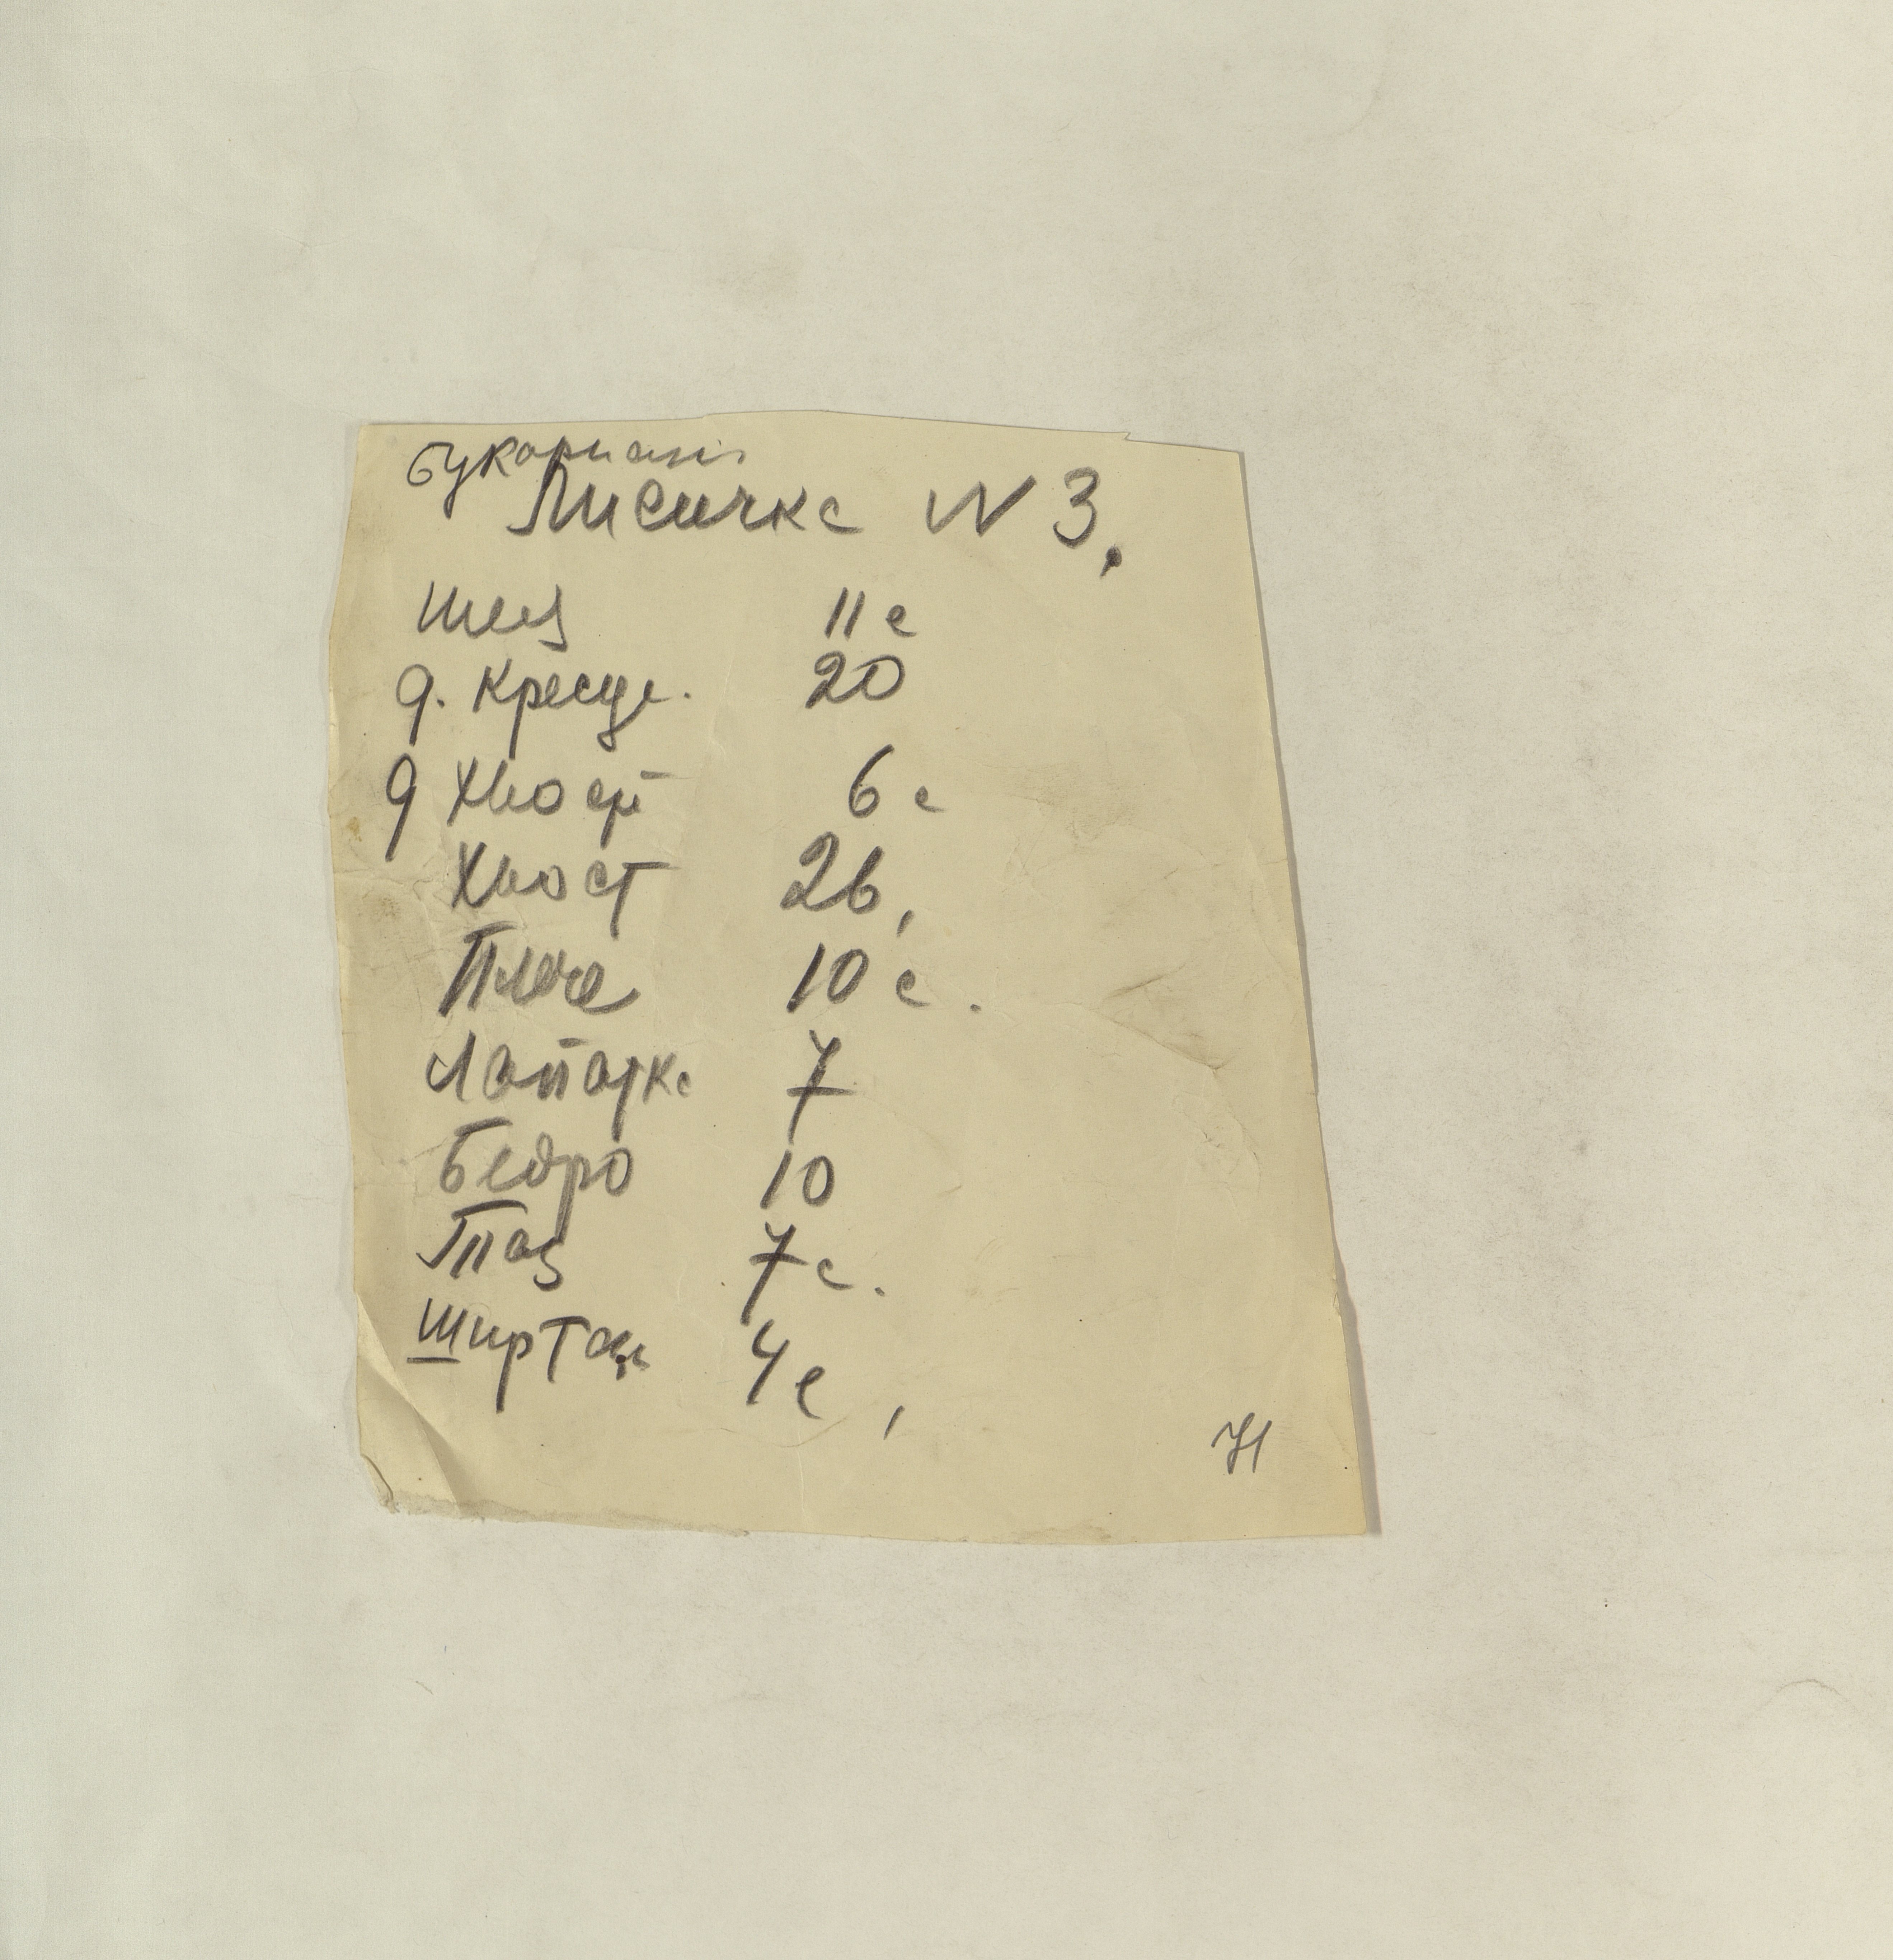 Лисичка N 3,
Шея 11 с
д. Кресце. 20
д Хвост 6 с
Хвост 26,
Плече 10 с.
Лапатка 7
Бедро 10
Таз 7 с.
Шир Таза 4 с,
71